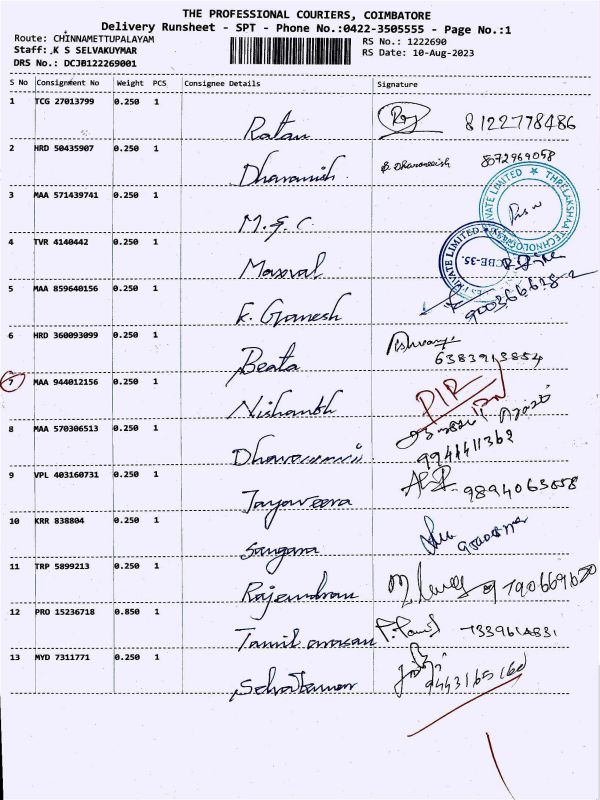 THE PROFESSIONAL COURIERS, COIMBATORE
Delivery Runsheet - SPT - Phone No.:0422-3505555 - Page No.:1
Route: CHINNAMETTUPALAYAM RS No.: 1222690
Staff: K S SELVAKUYMAR RS Date: 10-Aug-2023
DRS No.: DCJB122269001
S No Consignment No Weight PCS Consignee Details Signature
1 TCG 27013799 0.250 1
Ratan 8122778486
2 HRD 50435907 0.250 1
Dharanish 8072969058
3 MAA 571439741 0.250 1
M.G.C
PRIVATE LIMITED ★
4 TVR 4140442 0.250 1
PRIVATE LIMITED
CBE-35.
5 MAA 859640156 0.250 1
K. Ganesh
6 HRD 360093099 0.250 1
Beata 6383913854
7 MAA 944012156 0.250 1
Nishanth
8 MAA 570306513 0.250 1
9944411362
9 VPL 403160731 0.250 1
Jayaveera 9894063858
10 KRR 838804 0.250 1
Sangara
11 TRP 5899213 0.250 1
Rajendran 9790669620
12 PRO 15236718 0.850 1
Tamil arasan 7339614831
13 MYD 7311771 0.250 1
9443165160